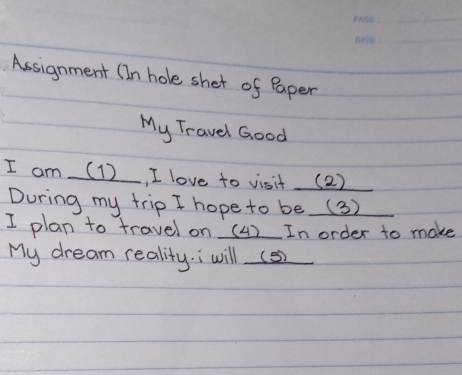 Assignment (In hole shet of Paper
My Travel Good
I am (1), I love to visit (2)
During my trip I hope to be (3)
I plan to travel on (4) In order to make
My dream reality. i will (5)